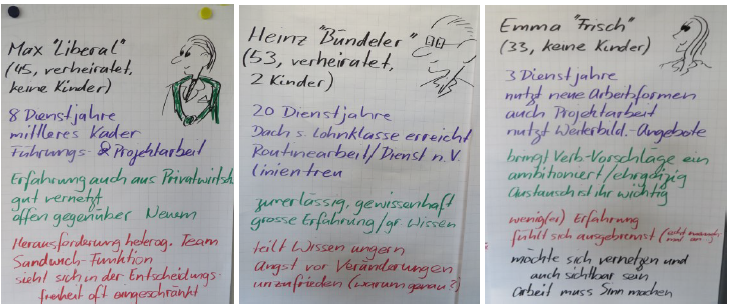 Max "Liberal"
(45, verheiratet,
keine Kinder)
8 Dienstjahre
mittleres Kader
Führungs- & Projektarbeit
Erfahrung auch aus Privatwirtsch.
gut vernetzt
offen gegenüber Neuem
Herausforderung heterog. Team
Sandwich-Funktion
sieht sich in der Entscheidungs-
freiheit oft eingeschränkt
Heinz "Bündeler"
(53, verheiratet,
2 Kinder)
20 Dienstjahre
Dach s. Lohnklasse erreicht
Routinearbeit/Dienst n.V.
linientreu
zuverlässig, gewissenhaft
grosse Erfahrung/gr. Wissen
teilt Wissen ungern
Angst vor Veränderungen
unzufrieden (warum genau?)
Emma "Frisch"
(33, keine Kinder)
3 Dienstjahre
nutzt neue Arbeitsformen
auch Projektarbeit
nutzt Weiterbild.-Angebote
bringt Verb-Vorschläge ein
ambitioniert/ehrgeizig
Austausch ist ihr wichtig
wenig(er) Erfahrung
fühlt sich ausgebremst
möchte sich vernetzen und
auch sichtbar sein
Arbeit muss Sinn machen